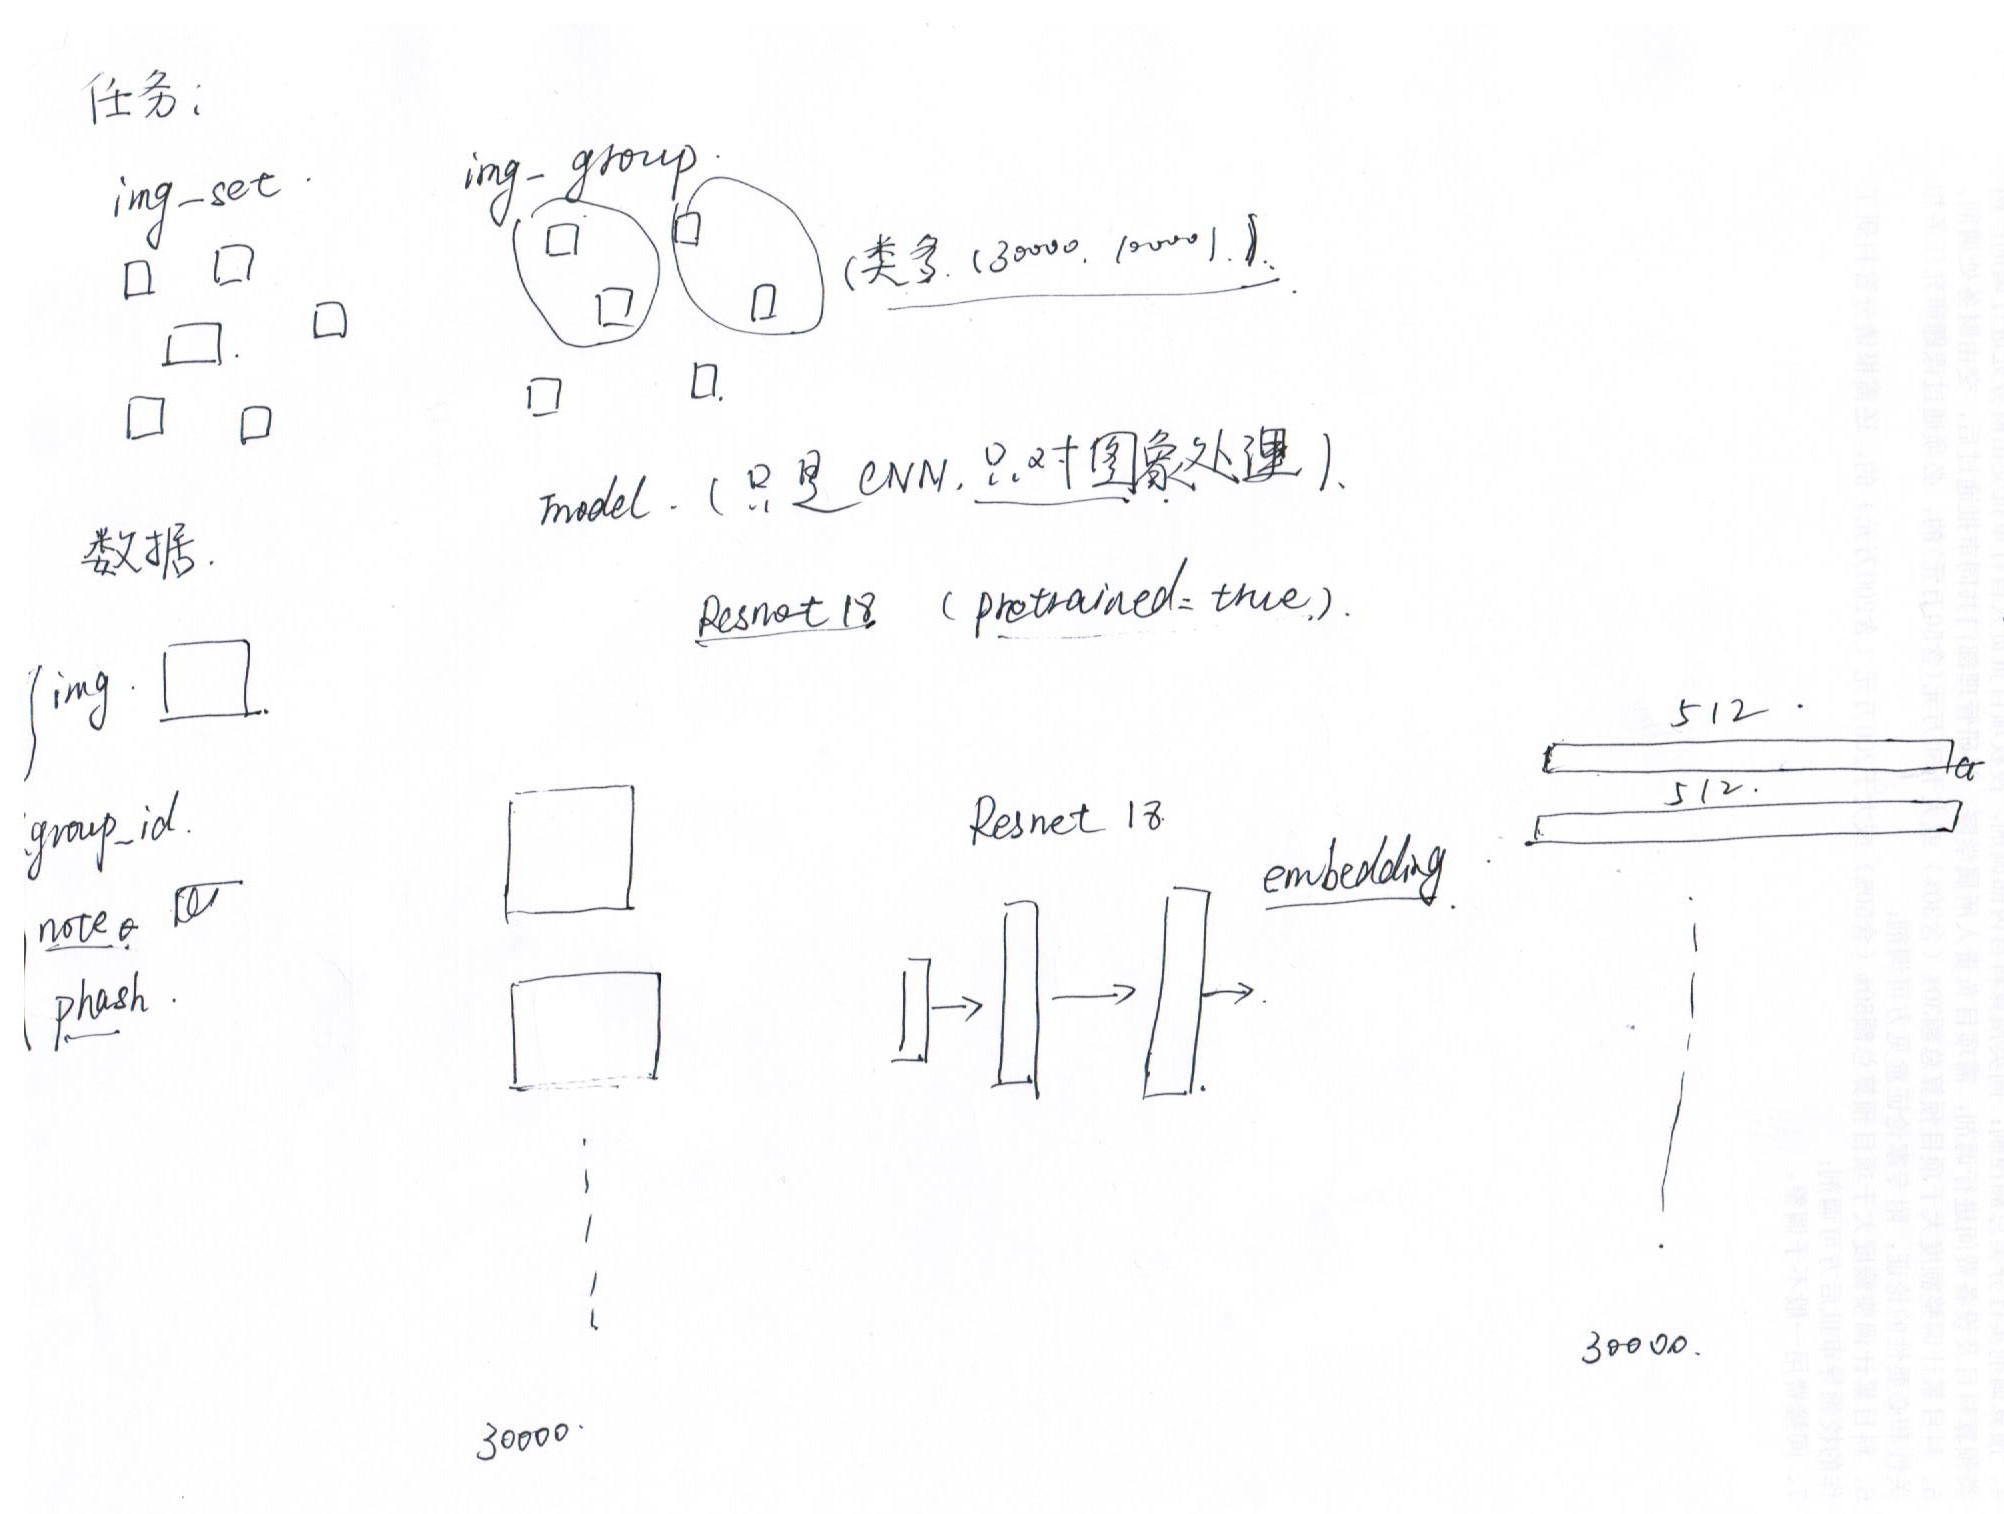 任务:
img_set.
img_group.
(类多.(30000, 10000).).
model.(只是CNN,只对图象处理).
Resnet 18 (pretrained=true).
数据.
img.
group_id.
note
phash.
Resnet 18
embedding.
512.
512.
30000.
30000.